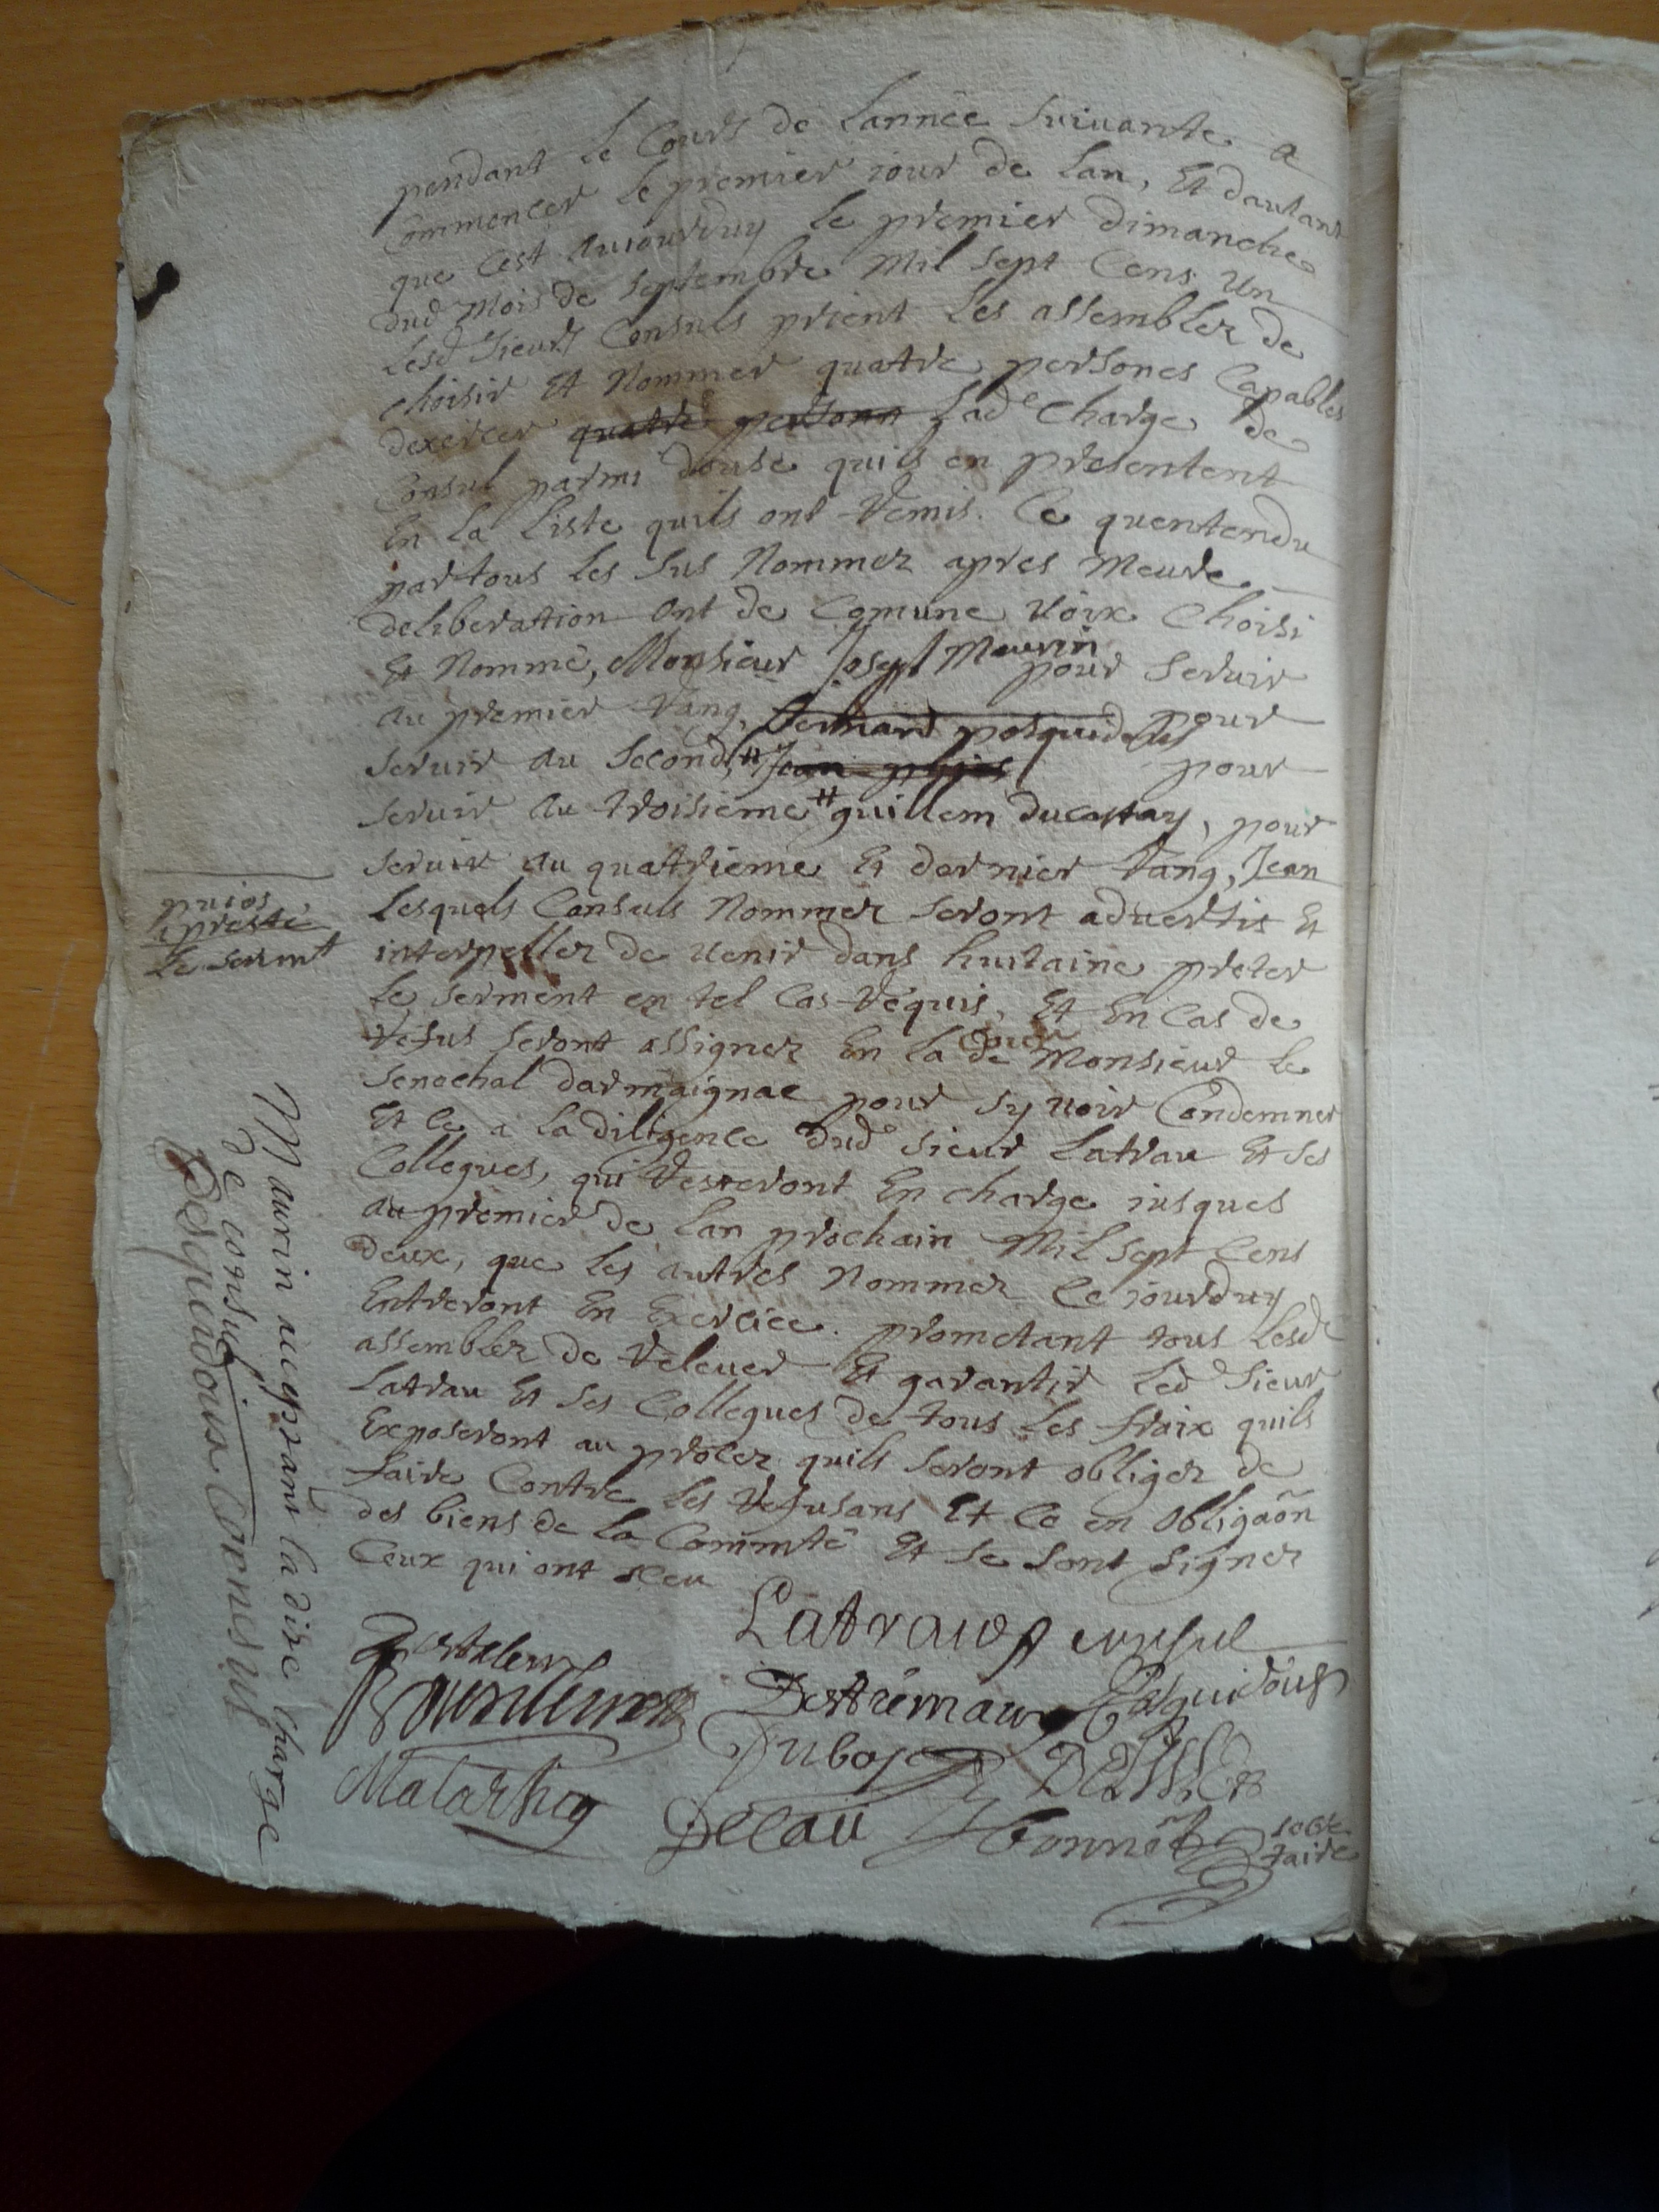 pendant le Cours de lannée suivante a
Commencer le premier jour de lan, Et dautant
que Cest aujourduy le premier dimanche
dud mois de septembre Mil sept Cens Un
lesd sieurs Consuls prient les assemblez de
choisir Et Nommer quatre persones Capables
dexercer quatre person lade charge de
Consul parmi douse quils en presentent
En la liste quils ont remis. Ce quentendu
partous les sus Nommez apres Meure
deliberation ont de Comune Voix Choisi
Et Nommé, Monsieur Joseph Maurin pour servir
au premier rang, Bernard posquidoux pour
servir au second, # Jean puios pour
servir au troisieme # guillem ducastay, pour
servir au quatrieme Et dernier rang, Jean
puios
a presté
le sermt
lesquels Consuls Nommez seront advertis Et
interpellez de venir dans huitaine preter
le serment en tel Cas requis, Et En Cas de
refus seront assignez En la Cour de Monsieur le
senechal darmaignac pour sy voir Condemner
Et ce a la diligence dud sieur Latrau Et ses
Collegues, qui resteront En charge jusques
au premier de lan prochain Mil sept Cens
deux, que les autres Nommez Ce jourduy
Entreront En Exercice. prometant tous lesd
assemblez de relever Et garantir led sieur
Latrau Et ses Collegues de tous les fraix quils
Exposeront au procez quils seront obligez de
faire Contre les refusans Et Ce en obligaõn
des biens de la Commté Et se sont signez
Ceux qui ont sceu
Maurin acceptant la dite charge
de consul
Posquidoux Consul
Latrau consul
Destremau Posquidoux
Dubosc
Malartiq
Delau bonnet